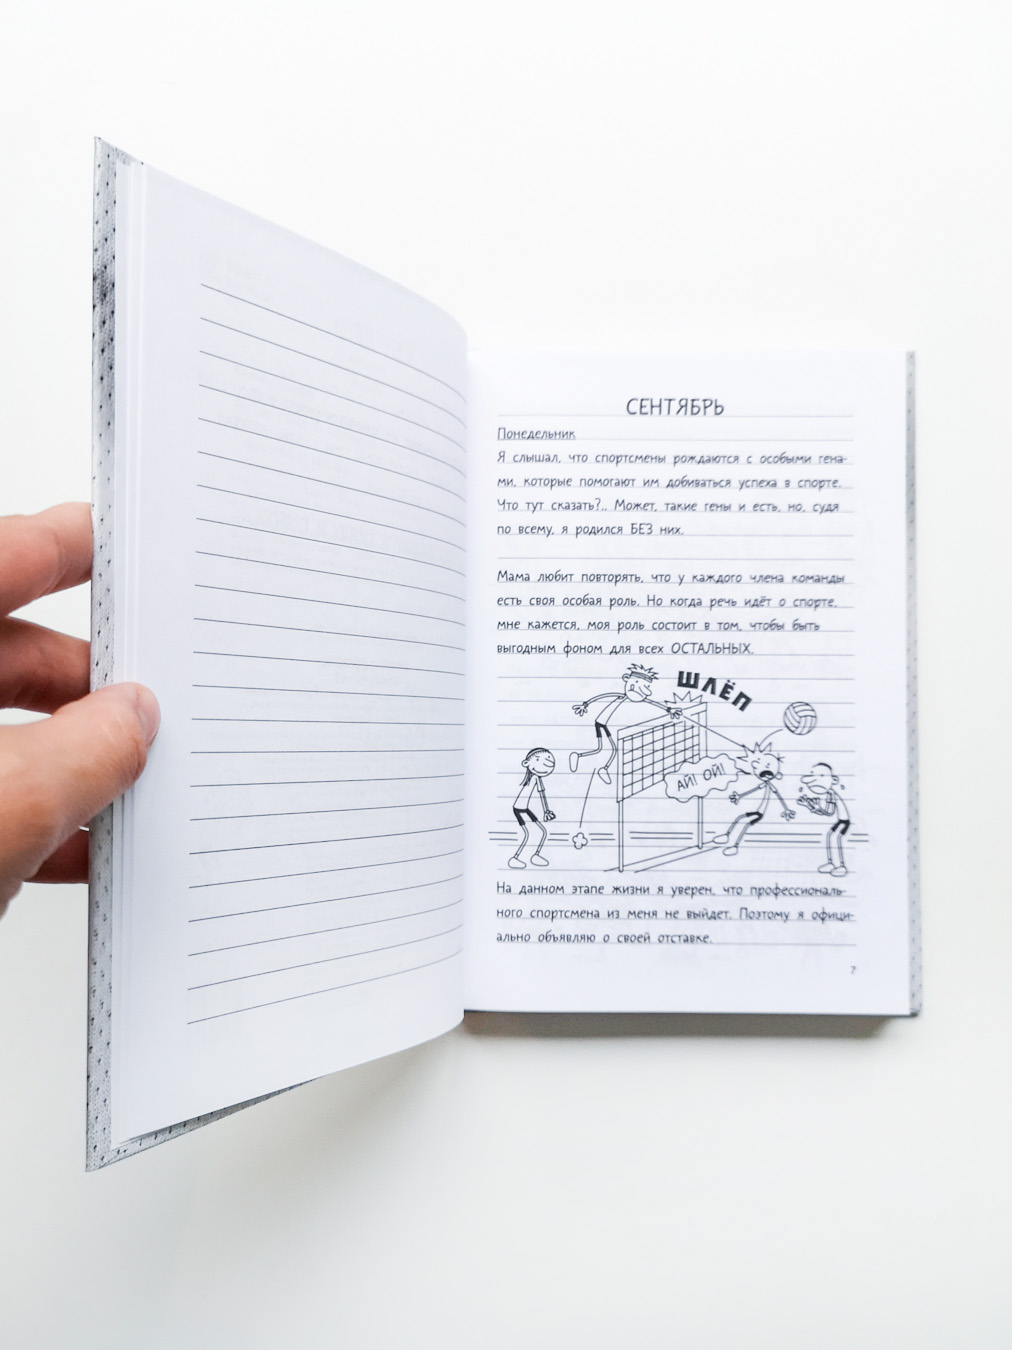 СЕНТЯБРЬ
Понедельник
Я слышал, что спортсмены рождаются с особыми гена-
ми, которые помогают им добиваться успеха в спорте.
Что тут сказать?.. Может, такие гены и есть, но, судя
по всему, я родился БЕЗ них.
Мама любит повторять, что у каждого члена команды
есть своя особая роль. Но когда речь идёт о спорте,
мне кажется, моя роль состоит в том, чтобы быть
выгодным фоном для всех ОСТАЛЬНЫХ.
ШЛЁП
АЙ! ОЙ!
На данном этапе жизни я уверен, что профессиональ-
ного спортсмена из меня не выйдет. Поэтому я офици-
ально объявляю о своей отставке.
7